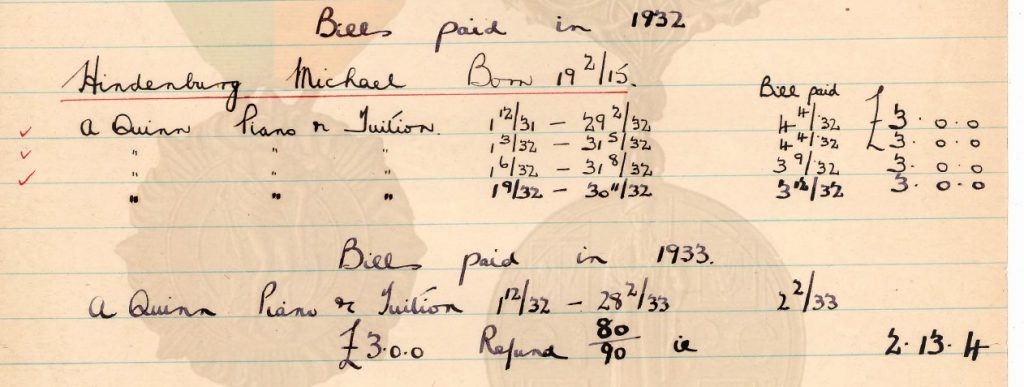 Bills paid in 1932
Hindenburg Michael Born 19 2/15.
Bill paid
A Quinn Piano & Tuition. 1 12/31 – 29 2/32 4 4/32 £3.0.0
" " " 1 3/32 – 31 5/32 4 4/32 3.0.0
" " " 1 6/32 – 31 8/32 3 9/32 3.0.0
" " " 1 9/32 – 30 11/32 3 12/32 3.0.0
Bills paid in 1933.
A Quinn Piano & Tuition 1 12/32 – 28 2/33 2 2/33
£3.0.0 Refund 80/90 ie 2.13.4